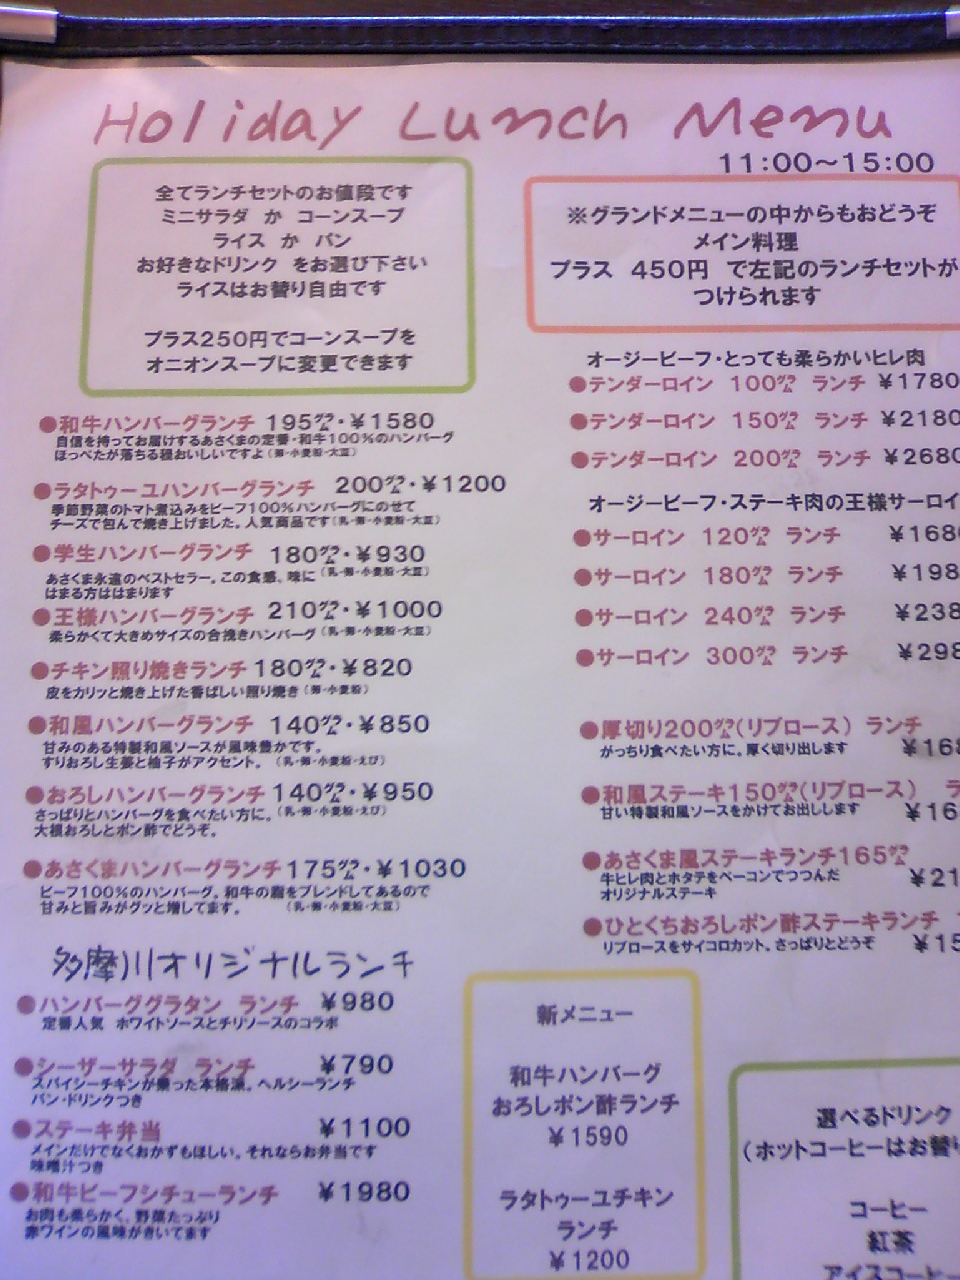 Holiday Lunch Menu
11:00～15:00
全てランチセットのお値段です
ミニサラダ か コーンスープ
ライス か パン
お好きなドリンク をお選び下さい
ライスはお替り自由です
プラス250円でコーンスープを
オニオンスープに変更できます
※グランドメニューの中からもおどうぞ
メイン料理
プラス 450円 で左記のランチセットが
つけられます
●和牛ハンバーグランチ 195㌘・¥1580
自信を持ってお届けするあさくまの定番・和牛100%のハンバーグ
ほっぺたが落ちる程おいしいですよ（卵・小麦粉・大豆）
●ラタトゥーユハンバーグランチ 200㌘・¥1200
季節野菜のトマト煮込みをビーフ100%ハンバーグにのせて
チーズで包んで焼き上げました。人気商品です（乳・卵・小麦粉・大豆）
●学生ハンバーグランチ 180㌘・¥930
あさくま永遠のベストセラー。この食感、味に（乳・卵・小麦粉・大豆）
はまる方ははまります
●王様ハンバーグランチ 210㌘・¥1000
柔らかくて大きめサイズの合挽きハンバーグ（乳・卵・小麦粉・大豆）
●チキン照り焼きランチ 180㌘・¥820
皮をカリッと焼き上げた香ばしい照り焼き（卵・小麦粉）
●和風ハンバーグランチ 140㌘・¥850
甘みのある特製和風ソースが風味豊かです。
すりおろし生姜と柚子がアクセント。（乳・卵・小麦粉・えび）
●おろしハンバーグランチ 140㌘・¥950
さっぱりとハンバーグを食べたい方に。（乳・卵・小麦粉・えび）
大根おろしとポン酢でどうぞ。
●あさくまハンバーグランチ 175㌘・¥1030
ビーフ100%のハンバーグ。和牛の脂をブレンドしてあるので
甘みと旨みがグッと増してます。（乳・卵・小麦粉・大豆）
多摩川オリジナルランチ
●ハンバーググラタン ランチ ¥980
定番人気 ホワイトソースとチリソースのコラボ
●シーザーサラダ ランチ ¥790
スパイシーチキンが乗った本格派。ヘルシーランチ
パン・ドリンクつき
●ステーキ弁当 ¥1100
メインだけでなくおかずもほしい。それならお弁当です
味噌汁つき
●和牛ビーフシチューランチ ¥1980
お肉も柔らかく、野菜たっぷり
赤ワインの風味がきいてます
オージービーフ・とっても柔らかいヒレ肉
●テンダーロイン 100㌘ ランチ ¥1780
●テンダーロイン 150㌘ ランチ ¥2180
●テンダーロイン 200㌘ ランチ ¥2680
オージービーフ・ステーキ肉の王様サーロイ
●サーロイン 120㌘ ランチ ¥168
●サーロイン 180㌘ ランチ ¥198
●サーロイン 240㌘ ランチ ¥238
●サーロイン 300㌘ ランチ ¥298
●厚切り200㌘(リブロース) ランチ
がっちり食べたい方に。厚く切り出します ¥168
●和風ステーキ150㌘(リブロース) ラ
甘い特製和風ソースをかけてお出しします ¥16
●あさくま風ステーキランチ165㌘
牛ヒレ肉とホタテをベーコンでつつんだ ¥21
オリジナルステーキ
●ひとくちおろしポン酢ステーキランチ
リブロースをサイコロカット、さっぱりとどうぞ ¥15
新メニュー
和牛ハンバーグ
おろしポン酢ランチ
¥1590
ラタトゥーユチキン
ランチ
¥1200
選べるドリンク
(ホットコーヒーはお替り
コーヒー
紅茶
アイスコーヒー